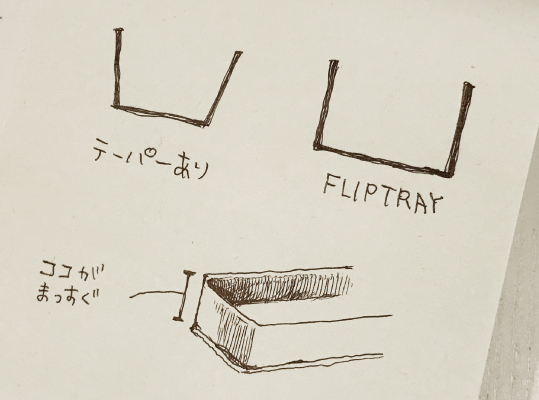 テーパーあり
FLIPTRAY
ココが
まっすぐ